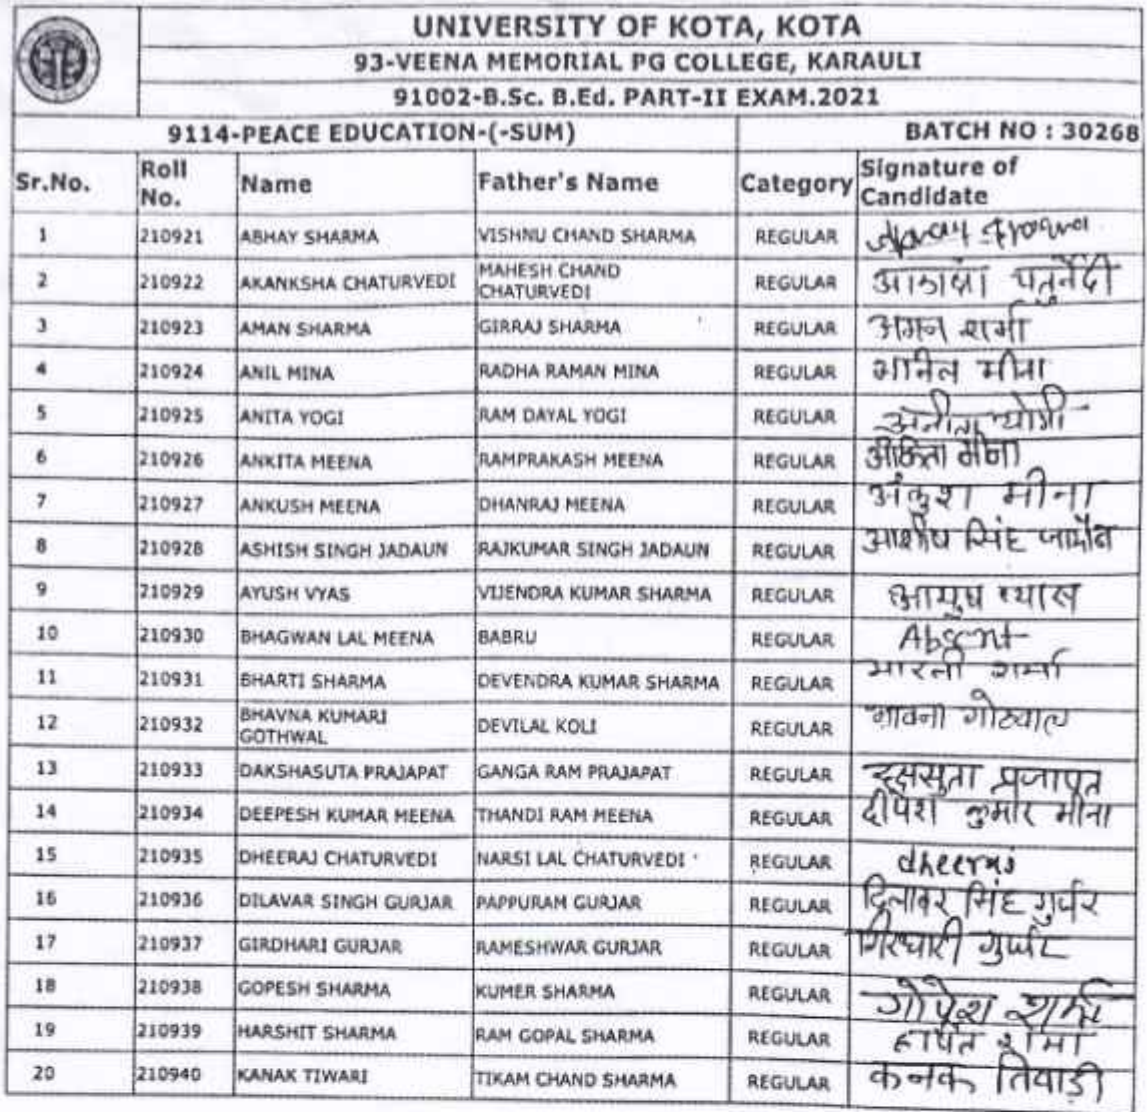 UNIVERSITY OF KOTA, KOTA
93-VEENA MEMORIAL PG COLLEGE, KARAULI
91002-B.Sc. B.Ed. PART-II EXAM.2021
9114-PEACE EDUCATION-(-SUM) BATCH NO : 30268
Sr.No. Roll No. Name Father's Name Category Signature of Candidate
1 210921 ABHAY SHARMA VISHNU CHAND SHARMA REGULAR
2 210922 AKANKSHA CHATURVEDI MAHESH CHAND CHATURVEDI REGULAR आकांक्षा चतुर्वेदी
3 210923 AMAN SHARMA GIRRAJ SHARMA REGULAR अमन शर्मा
4 210924 ANIL MINA RADHA RAMAN MINA REGULAR अनिल मीना
5 210925 ANITA YOGI RAM DAYAL YOGI REGULAR अनीता योगी
6 210926 ANKITA MEENA RAMPRAKASH MEENA REGULAR अंकिता मीना
7 210927 ANKUSH MEENA DHANRAJ MEENA REGULAR अंकुश मीना
8 210928 ASHISH SINGH JADAUN RAJKUMAR SINGH JADAUN REGULAR आशीष सिंह जादौन
9 210929 AYUSH VYAS VIJENDRA KUMAR SHARMA REGULAR आयुष व्यास
10 210930 BHAGWAN LAL MEENA BABRU REGULAR Absent
11 210931 BHARTI SHARMA DEVENDRA KUMAR SHARMA REGULAR भारती शर्मा
12 210932 BHAVNA KUMARI GOTHWAL DEVILAL KOLI REGULAR भावना गोठवाल
13 210933 DAKSHASUTA PRAJAPAT GANGA RAM PRAJAPAT REGULAR दक्षसुता प्रजापत
14 210934 DEEPESH KUMAR MEENA THANDI RAM MEENA REGULAR दीपेश कुमार मीना
15 210935 DHEERAJ CHATURVEDI NARSI LAL CHATURVEDI REGULAR dheeraj
16 210936 DILAVAR SINGH GURJAR PAPPURAM GURJAR REGULAR दिलावर सिंह गुर्जर
17 210937 GIRDHARI GURJAR RAMESHWAR GURJAR REGULAR गिरधारी गुर्जर
18 210938 GOPESH SHARMA KUMER SHARMA REGULAR गोपेश शर्मा
19 210939 HARSHIT SHARMA RAM GOPAL SHARMA REGULAR हर्षित शर्मा
20 210940 KANAK TIWARI TIKAM CHAND SHARMA REGULAR कनक तिवाड़ी